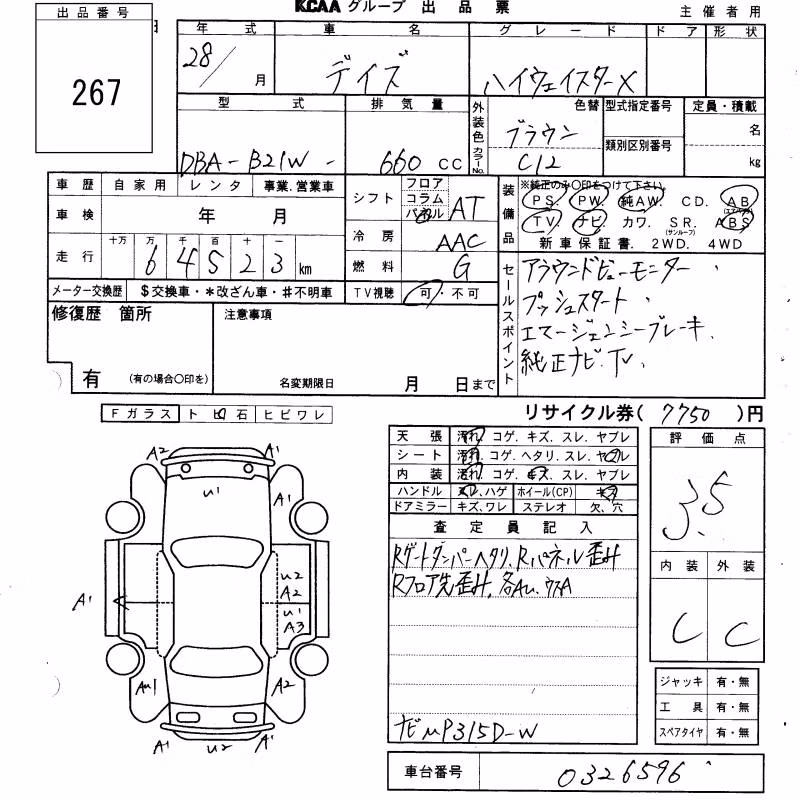 KCAA グループ 出 品 票
主 催 者 用
出 品 番 号
267
年 式
車 名
グ レ ー ド
ド ア
形 状
28/ 月
デイズ
ハイウェイスターX
型 式
排 気 量
外装色 カラーNo.
色替
型式指定番号
定員・積載
DBA-B21W-
660 CC
ブラウン
C12
類別区別番号
名
kg
車 歴
自 家 用
レ ン タ
事業.営業車
シフト
フロア
コラム
パネル
AT
装備品
※純正のみ〇印をつけて下さい。
PS. PW. 純AW. CD. AB
(エアバッグ)
TV. ナビ. カワ. SR. ABS
(サンルーフ)
新 車 保 証 書. 2WD. 4WD
車 検
年 月
冷 房
AAC
走 行
十万 万 千 百 十 一
6 4 5 2 3 km
燃 料
G
メーター交換歴
$交換車・*改ざん車・♯不明車
TV視聴
可・不可
セールスポイント
アラウンドビューモニター、
プッシュスタート、
エマージェンシーブレーキ.
純正ナビ.TV.
修復歴 箇所
注意事項
有 (有の場合〇印を)
名変期限日 月 日まで
リサイクル券( 7750 )円
Fガラス
ト ビ 石
ヒビワレ
天 張
汚れ. コゲ. キズ. スレ. ヤブレ
シート
汚れ. コゲ. ヘタリ. スレ. ヤブレ
内 装
汚れ. コゲ. キズ. スレ. ヤブレ
ハンドル
スレ.ハゲ
ホイール(CP)
キズ
ドアミラー
キズ、ワレ
ステレオ
欠、穴
評 価 点
3.5
内 装
外 装
C
C
査 定 員 記 入
Rゲートダンパーヘタリ、Rパネル歪み
Rフロア先歪み、各AU、ワスA
ナビμP315D-W
A2
A1
U1
A1
A1
U2
A2
U1
A3
A1
AU1
A2
A1
U2
A1
ジャッキ 有・無
工 具 有・無
スペアタイヤ 有・無
車台番号
0326596